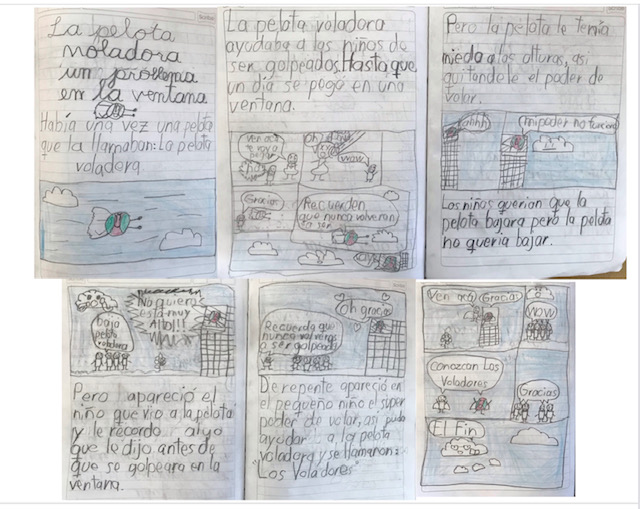 La pelota
voladora
un problema
en la ventana
Había una vez una pelota
que la llamaban: La pelota
voladora.
La pelota voladora
ayudaba a los niños de
ser golpeados. Hasta que
un día se pegó en una
ventana.
Ven acá
te voy a
Oh
wow
Gracias
Recuerden
que nunca volveran
a ser
Pero la pelota le temía
miedo a las alturas, asi
quitandole el poder de
volar.
ahhh
mi poder no funciona
Los niños querian que la
pelota bajara pero la pelota
no queria bajar.
baja
pelota
voladora
No quiero
esta muy
Alto!!!
Pero apareció el
niño que vio a la pelota
y le recordo algo
que le dijo antes de
que se golpeara en la
ventana.
Oh gracias
Recuerda que
nunca volveras
a ser golpeada
De repente apareció en
el pequeño niño el super
poder de volar, asi pudo
ayudar a la pelota
voladora y se llamaron:
"Los Voladores"
Ven acá
Gracias
WOW
Conozcan Los
Voladores
Gracias
El Fin